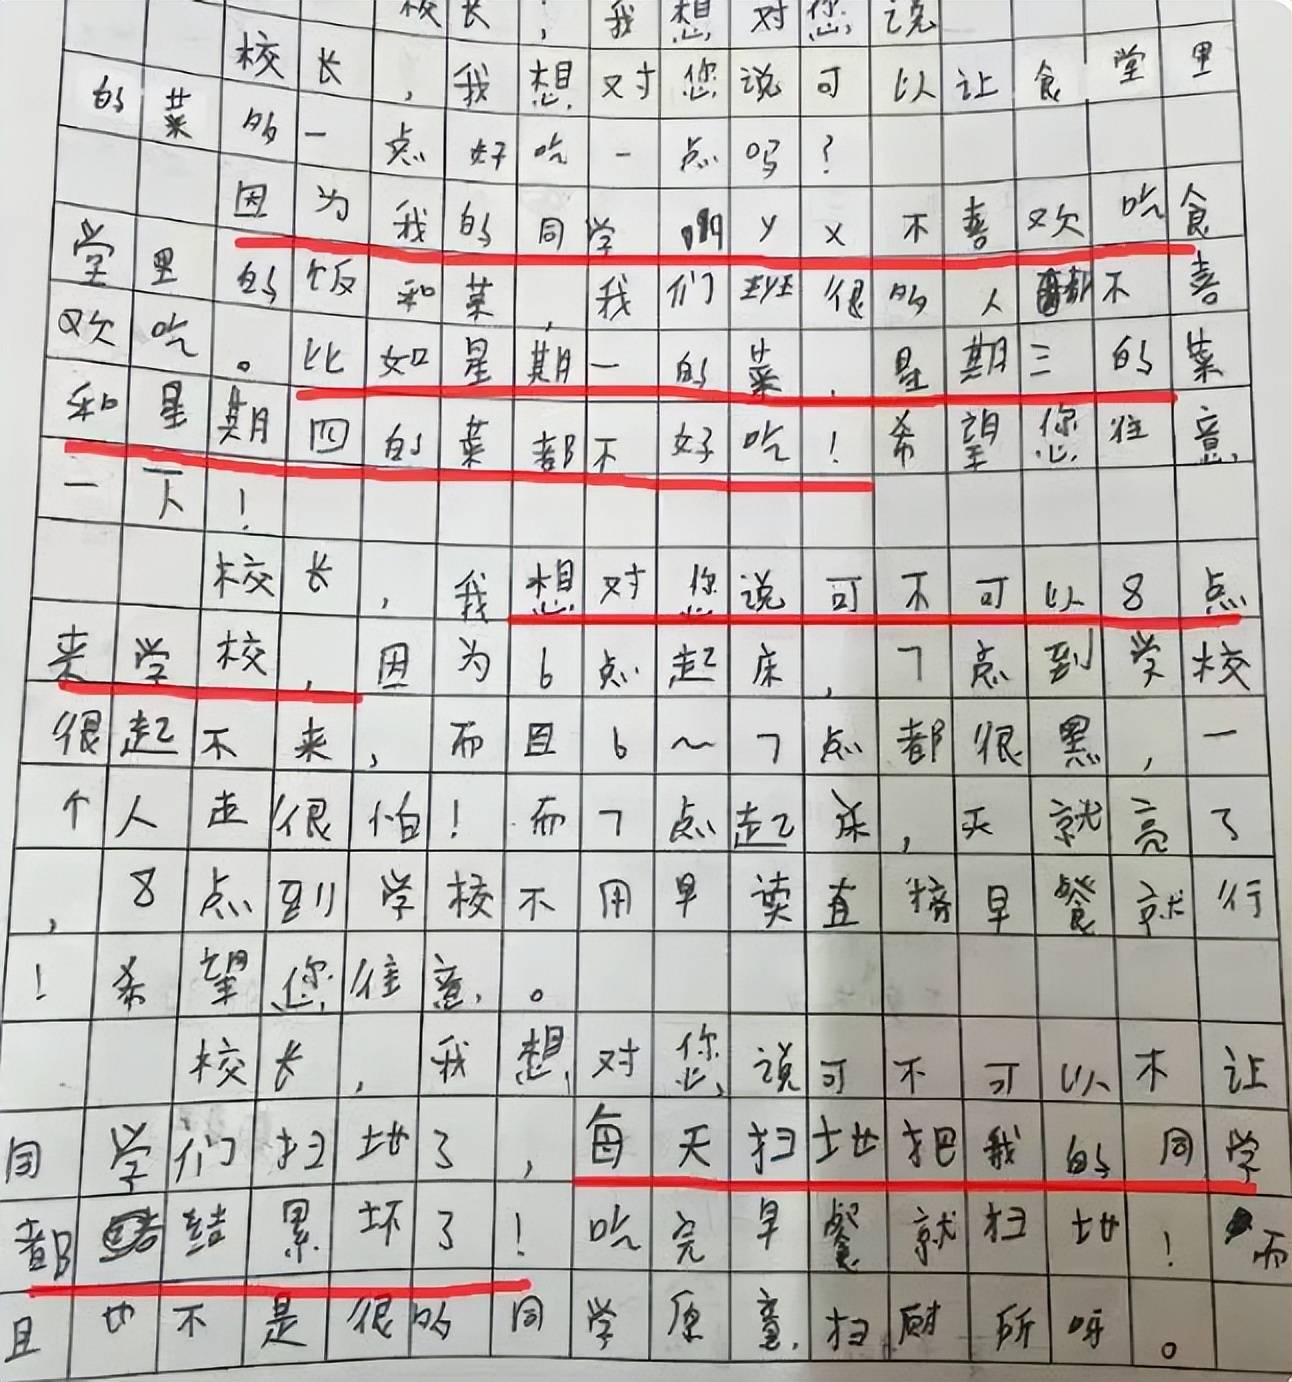 校长，我想对您说
校长，我想对您说可以让食堂里
的菜的一点好吃一点吗？
因为我的同学 y x 不喜欢吃食
堂里的饭和菜，我们班很的人都不喜
欢吃。比如星期一的菜，星期三的菜
和星期四的菜都不好吃！希望您往意
一下！
校长，我想对您说可不可以8点
来学校，因为6点起床，7点到学校
很起不来，而且6～7点都很黑，一
个人走很怕！而7点起床，天就亮了
，8点到学校不用早读直接早餐就行
！希望您往意。
校长，我想对您说可不可以不让
同学们扫地了，每天扫地把我的同学
都结累坏了！吃完早餐就扫地！而
且也不是很的同学原意扫厕所呀。